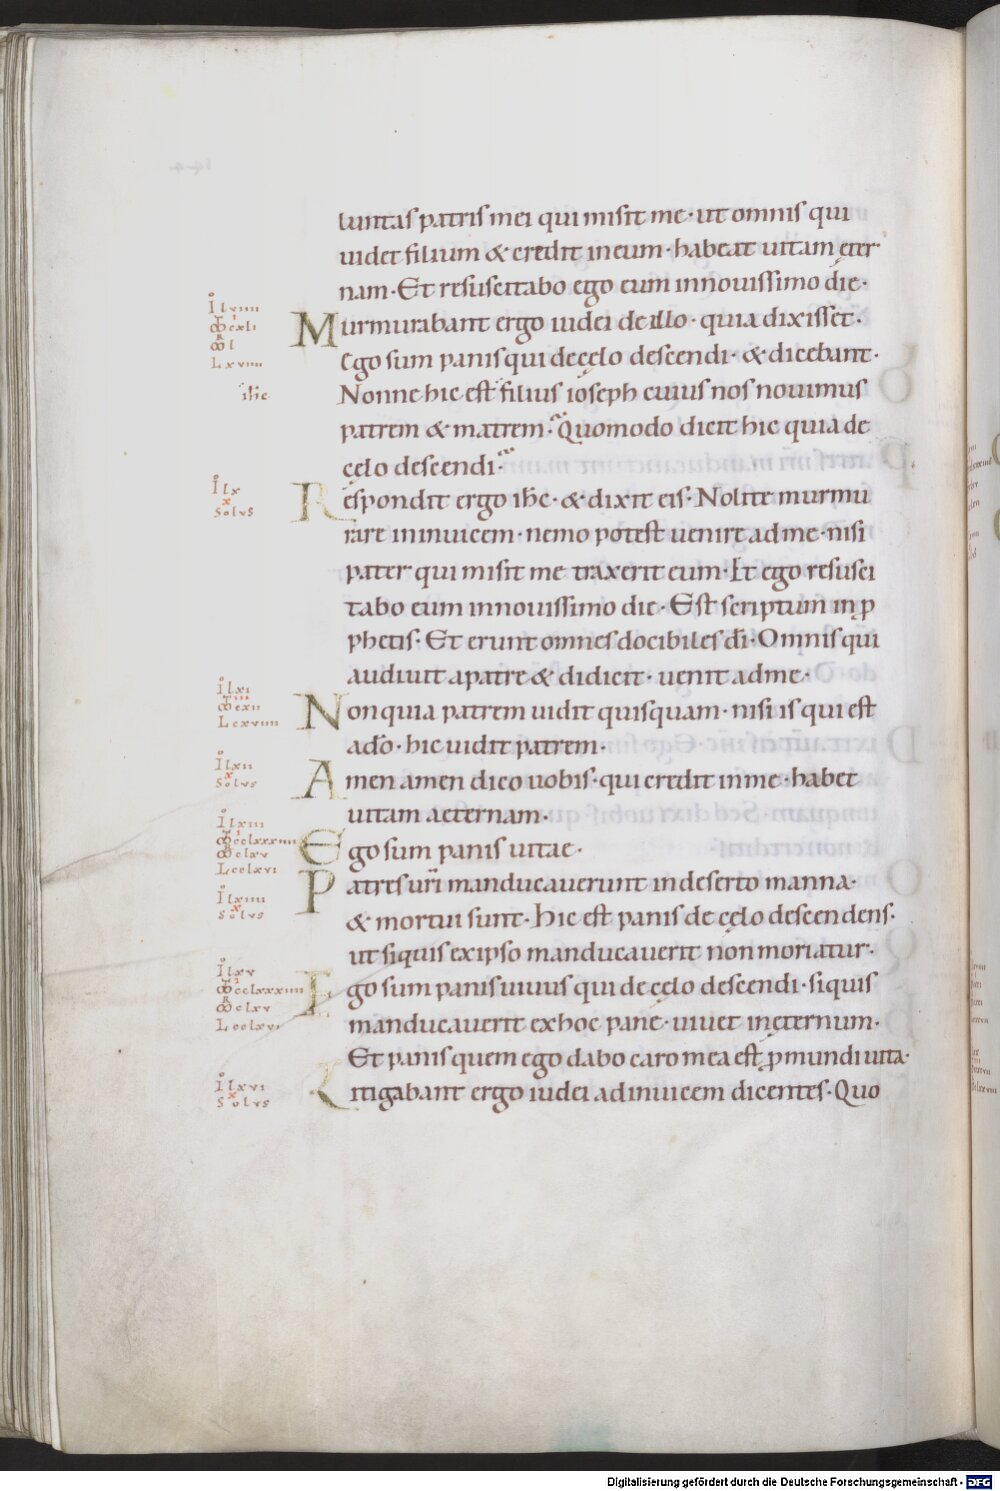 luntas patris mei qui misit me · ut omnis qui
uidet filium & credit in eum · habeat uitam ęter
nam · Et resuscitabo ego eum in nouissimo die ·
Murmurabant ergo iudei de illo · quia dixisset ·
Ego sum panis qui de cęlo descendi · & dicebant ·
Nonne hic est filius ioseph cuius nos nouimus
patrem & matrem · Quomodo dicit hic quia de
cęlo descendi ·
Respondit ergo ihc · & dixit eis · Nolite murmu
rare in inuicem · nemo potest uenire ad me · nisi
pater qui misit me traxerit eum · Et ego resusci
tabo eum in nouissimo die · Est scriptum in ꝓ
phetis · Et erunt omnes docibiles dı̄ · Omnis qui
audiuit a patre & didicit · uenit ad me ·
Non quia patrem uidit quisquam · nisi is qui est
a dō · hic uidit patrem ·
Amen amen dico uobis · qui credit in me · habet
uitam aeternam ·
Ego sum panis uitae ·
Patres urı̄ manducauerunt in deserto manna ·
& mortui sunt · Hic est panis de cęlo descendens ·
ut si quis ex ipso manducauerit non moriatur ·
Ego sum panis uiuus qui de cęlo descendi · si quis
manducauerit ex hoc pane · uiuet in ęternum ·
Et panis quem ego dabo caro mea est ꝓ mundi uita ·
Litigabant ergo iudei ad inuicem dicentes · Quo
I lviiii
Lxviiii
ihc
I lx
x
Solus
I lxi
Lcxviiii
I lxii
x
Solus
I lxiii
Lcclxvi
I lxiiii
x
Solus
I lxv
Lcclxvi
I lxvi
x
Solus
Digitalisierung gefördert durch die Deutsche Forschungsgemeinschaft - DFG